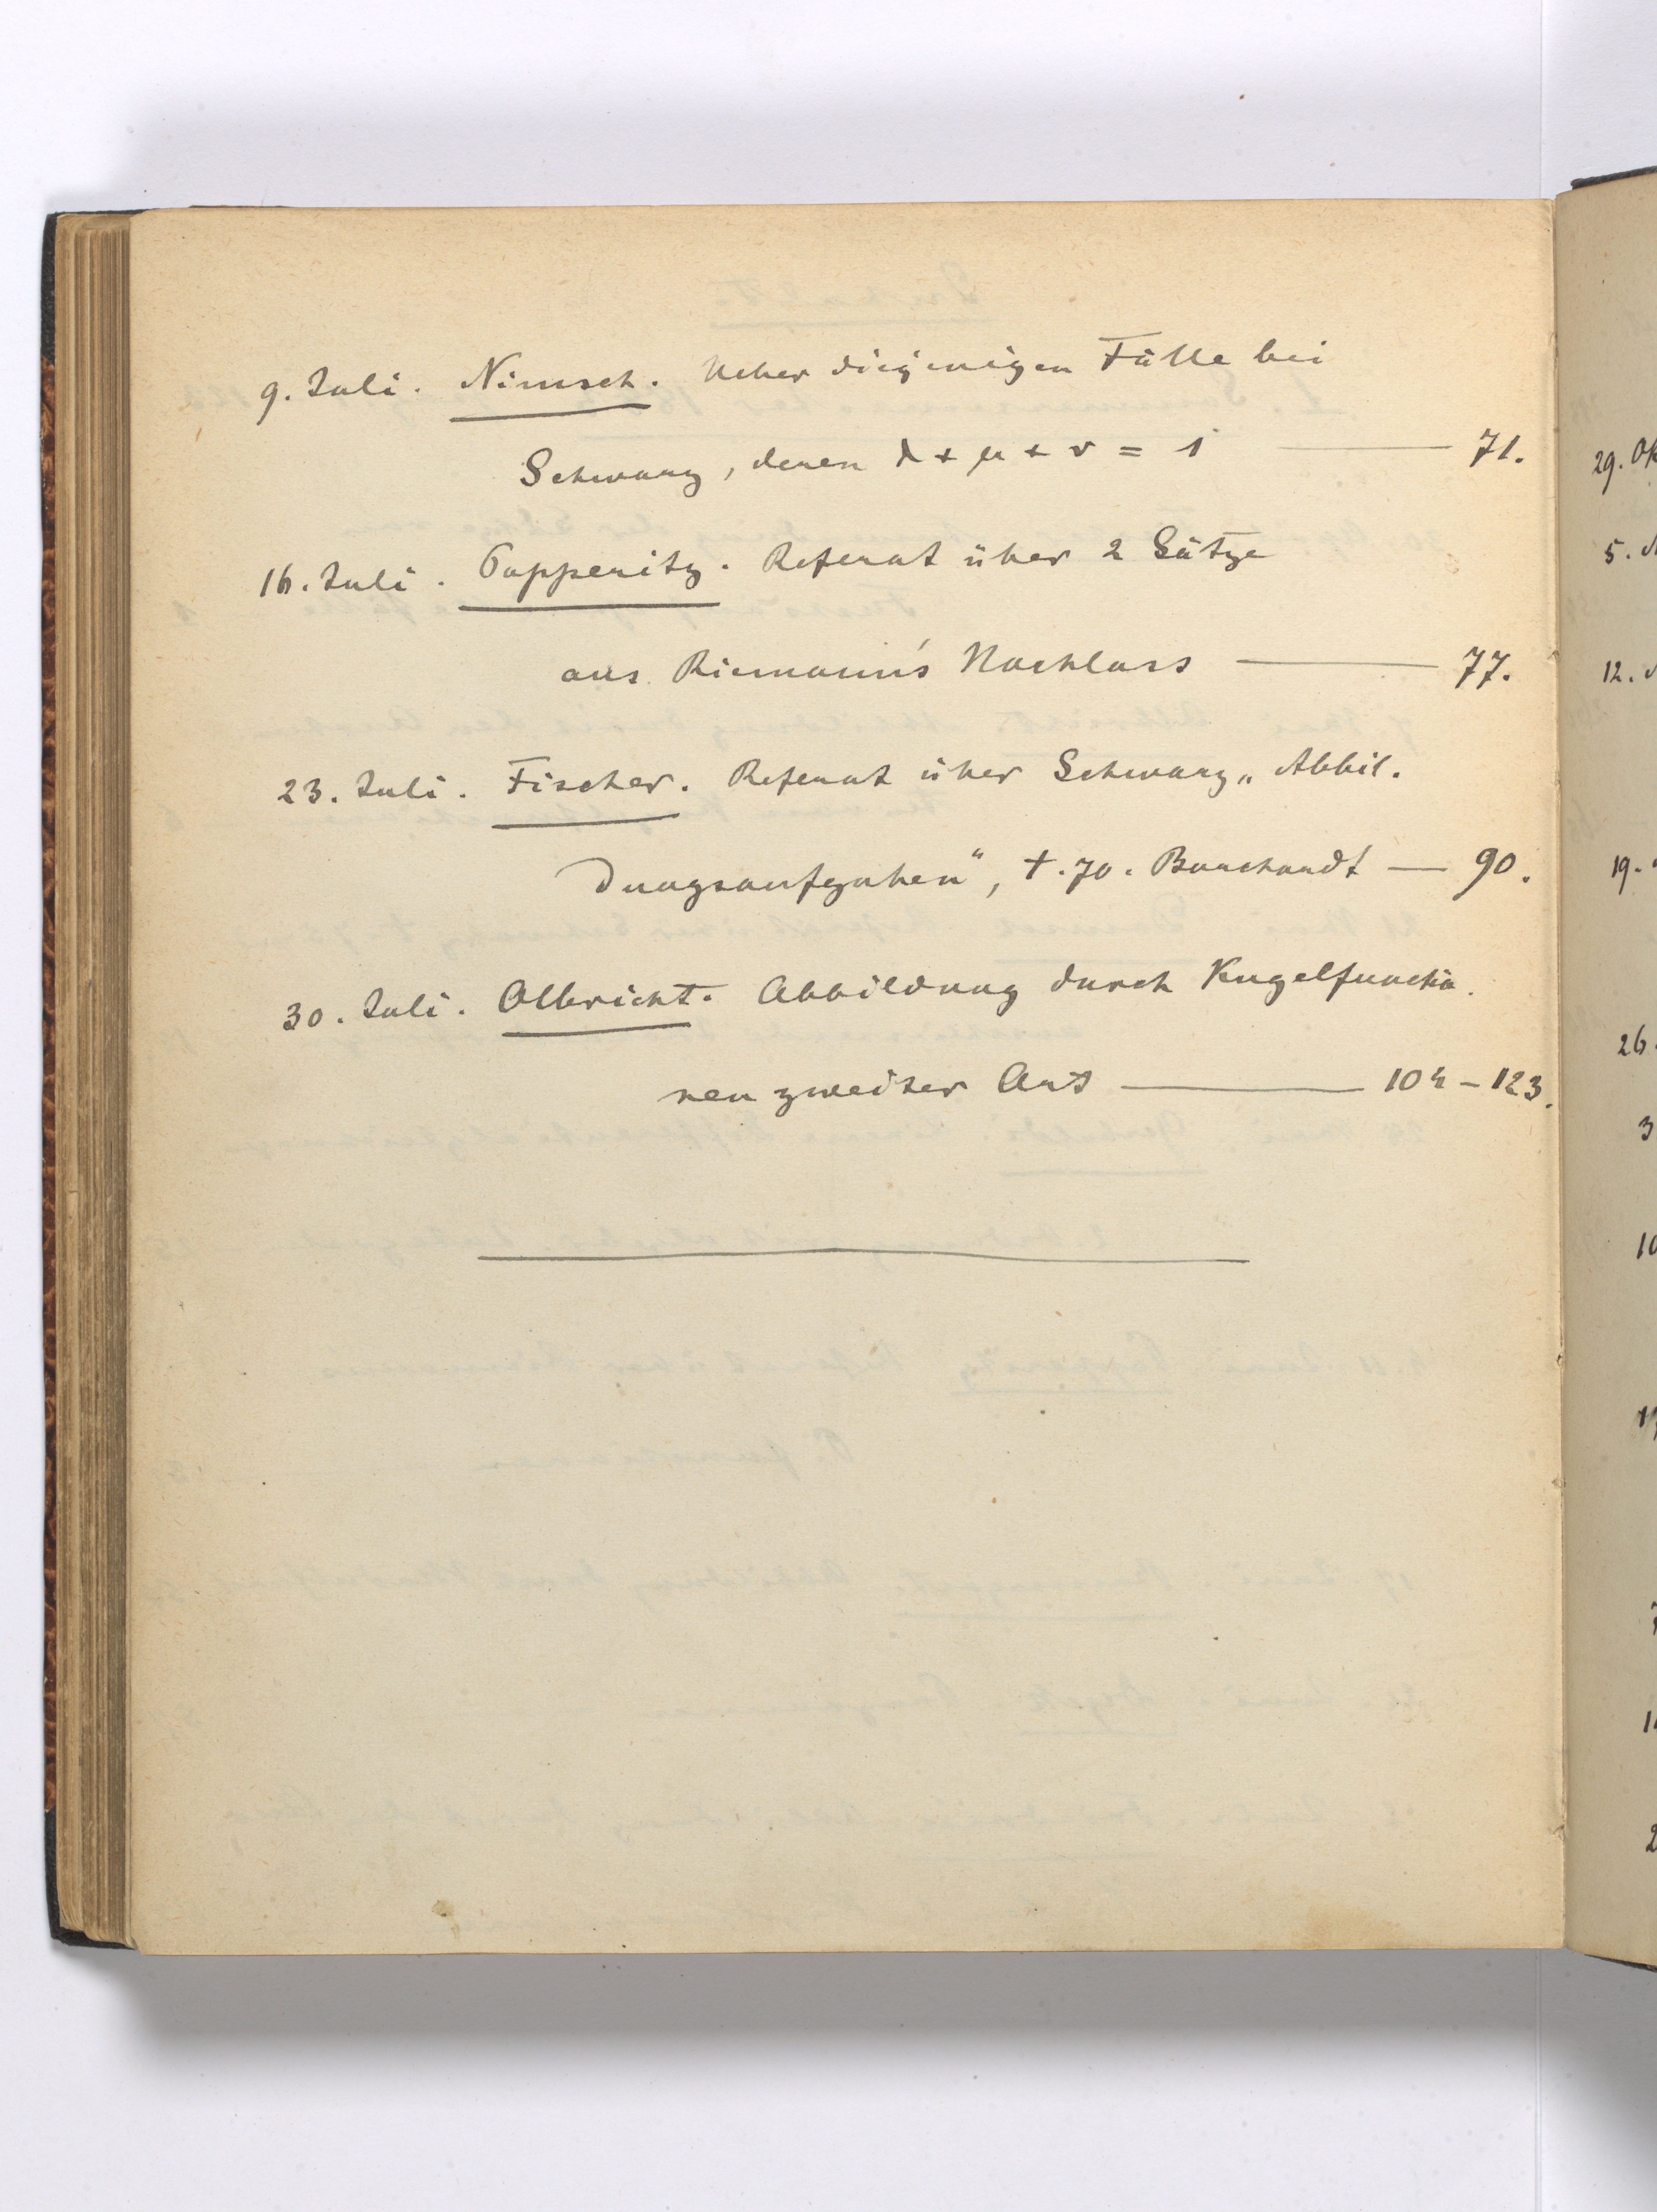 9. Juli. Nimsch. Ueber diejenigen Fälle bei
Schwarz, denen λ + μ + ν = 1 — 71.
16. Juli. Papperitz. Referat über 2 Sätze
aus Riemann's Nachlass — 77.
23. Juli. Fischer. Referat über Schwarz „Abbil-
dungsaufgaben“, t. 70. Borchardt — 90.
30. Juli. Olbricht. Abbildung durch Kugelfunctio-
nen zweiter Art — 104-123.
29. Ok
5.
12.
19.
26.
3
10